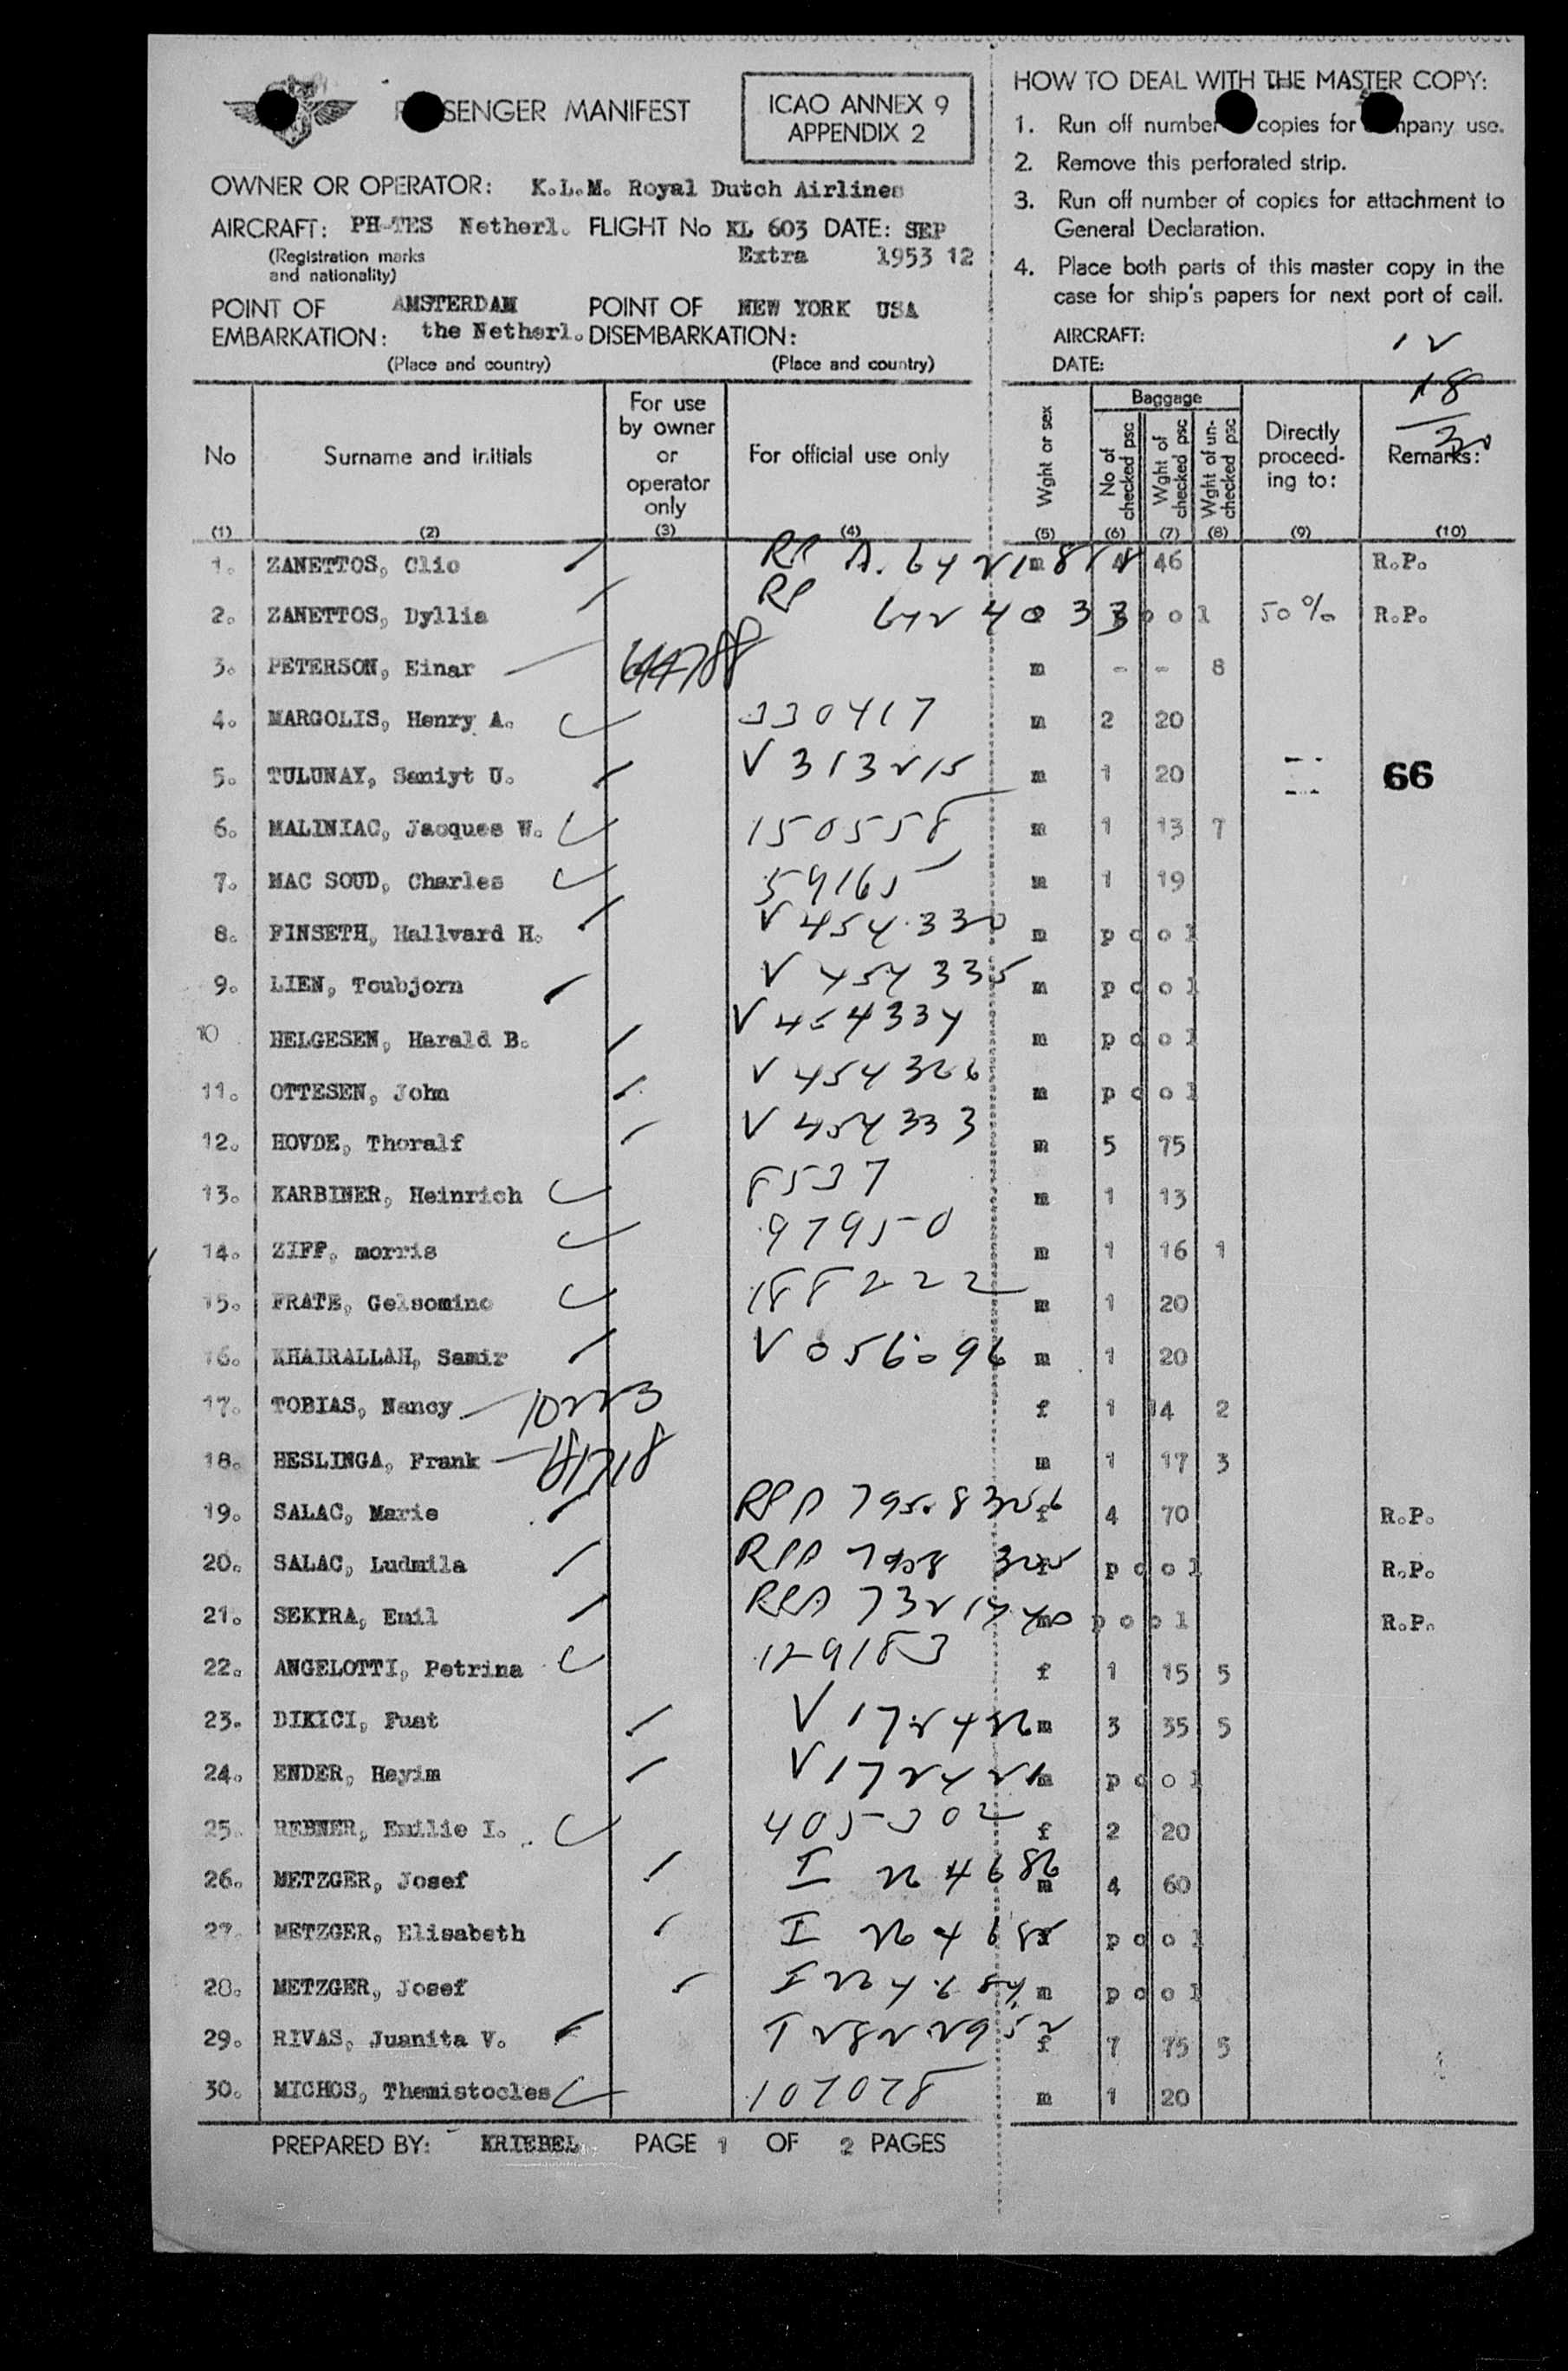 PASSENGER MANIFEST
ICAO ANNEX 9
APPENDIX 2
OWNER OR OPERATOR: K.L.M. Royal Dutch Airlines
AIRCRAFT: PH-TES Netherl. FLIGHT No KL 603 DATE: SEP
(Registration marks Extra 1953 12
and nationality)
POINT OF AMSTERDAM POINT OF NEW YORK USA
EMBARKATION: the Netherl. DISEMBARKATION:
(Place and country) (Place and country)
HOW TO DEAL WITH THE MASTER COPY:
1. Run off number copies for company use.
2. Remove this perforated strip.
3. Run off number of copies for attachment to
General Declaration.
4. Place both parts of this master copy in the
case for ship's papers for next port of call.
AIRCRAFT:
DATE:
12
18
30
No Surname and initials For use by owner or operator only For official use only Wght or sex Baggage No of checked psc Wght of checked psc Wght of un-checked psc Directly proceed-ing to: Remarks:
(1) (2) (3) (4) (5) (6) (7) (8) (9) (10)
1. ZANETTOS, Clio RP A. m 4 46 R.P.
2. ZANETTOS, Dyllia RP 6424033 pool 50% R.P.
3. PETERSON, Einar m - - 8
4. MARGOLIS, Henry A. 330417 m 2 20
5. TULUNAY, Saniyt U. V 313215 m 1 20 66
6. MALINIAC, Jacques W. 150558 m 1 13 7
7. MAC SOUD, Charles 59165 m 1 19
8. FINSETH, Hallvard H. V 454330 m pool
9. LIEN, Toubjorn V 454335 m pool
10 HELGESEN, Harald B. V 454334 m pool
11. OTTESEN, John V 454326 m pool
12. HOVDE, Thoralf V 454333 m 5 75
13. KARBINER, Heinrich 8537 m 1 13
14. ZIFF, morris 97950 m 1 16 1
15. FRATE, Gelsomino 188222 m 1 20
16. KHAIRALLAH, Samir V 056096 m 1 20
17. TOBIAS, Nancy 10223 f 1 14 2
18. HESLINGA, Frank 81718 m 1 17 3
19. SALAC, Marie RPA 7958326 f 4 70 R.P.
20. SALAC, Ludmila RPA 7958 325 pool R.P.
21. SEKYRA, Emil RPA m pool R.P.
22. ANGELOTTI, Petrina 129183 f 1 15 5
23. DIKICI, Fuat V 172426 m 3 35 5
24. ENDER, Heyim V 172421 m pool
25. REBNER, Emilie I. 405302 f 2 20
26. METZGER, Josef I 224686 m 4 60
27. METZGER, Elisabeth I 224685 pool
28. METZGER, Josef I 224684 m pool
29. RIVAS, Juanita V. I 2822952 f 7 75 5
30. MICHOS, Themistocles 107078 m 1 20
PREPARED BY: KRIEBEL PAGE 1 OF 2 PAGES